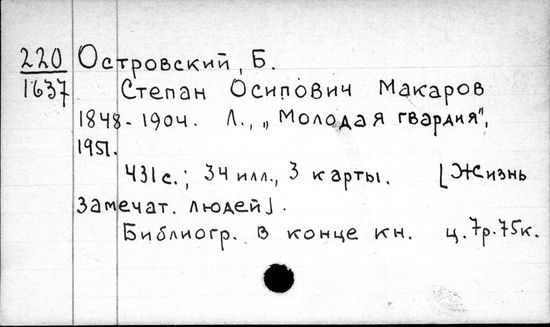 220 Островский, Б.
1637 Степан Осипович Макаров
1848-1904. Л., „Молодая гвардия",
1951.
431 с.; 34 илл., 3 карты. [Жизнь
Замечат. людей].
Библиогр. в конце кн. ц. 7р. 75к.